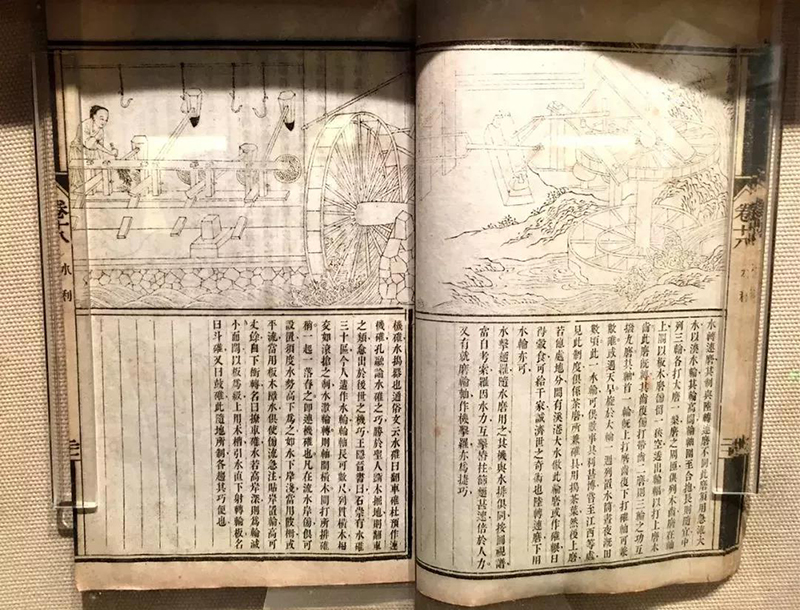 水轉連磨其制與陸轉連磨不同此磨須用急流大
水以湊水輪其輪高闊輪軸圍至合抱長則隨宜中
列三輪各打大磨一槃磨之周匝俱列木齒磨在軸
上閣以板木磨傍留一狹空透出輪輻以打上磨木
齒此磨既轉其齒復傍打帶齒二磨則三輪之功互
撥九磨其軸首一輪既上打磨齒復下打碓軸可兼
數碓或遇天旱旋於大輪一週列置水筒晝夜溉田
數頃此一水輪可供數事其利甚博嘗至江西等處
見此制度俱係茶磨所兼碓具用搗茶葉然後上磨
若他處地分間有溪港大水倣此輪磨或作碓輾日
得穀食可給千家誠濟世之奇術也陸轉連磨下用
水輪亦可
水擊麪羅隨水磨用之其機與水排俱同按圖視譜
當自考索羅因水力互擊樁柱篩麪甚速倍於人力
又有就磨輪軸作機擊羅亦為捷巧
卷十八
水利
機碓水搗器也通俗文云水碓曰翻車碓杜預作連
機碓孔融論水碓之巧勝於聖人斷木掘地則翻車
之類愈出於後世之機巧王隱晉書曰石崇有水碓
三十區今人造作水輪輪軸長可數尺列貫橫木相
交如滾搶之制水激輪轉則軸間橫木間打所排碓
梢一起一落舂之即連機碓也凡在流水岸傍俱可
設置須度水勢高下為之如水下岸淺當用陂柵或
平流當用板木障水俱使傍流急注貼岸置輪高可
丈餘自下衝轉名曰撩車碓若水高岸深則為輪減
小而闊以板為級上用木槽引水直下射轉輪板名
曰斗碓又曰鼓碓此隨地所制各趨其巧便也
卷十八
水利